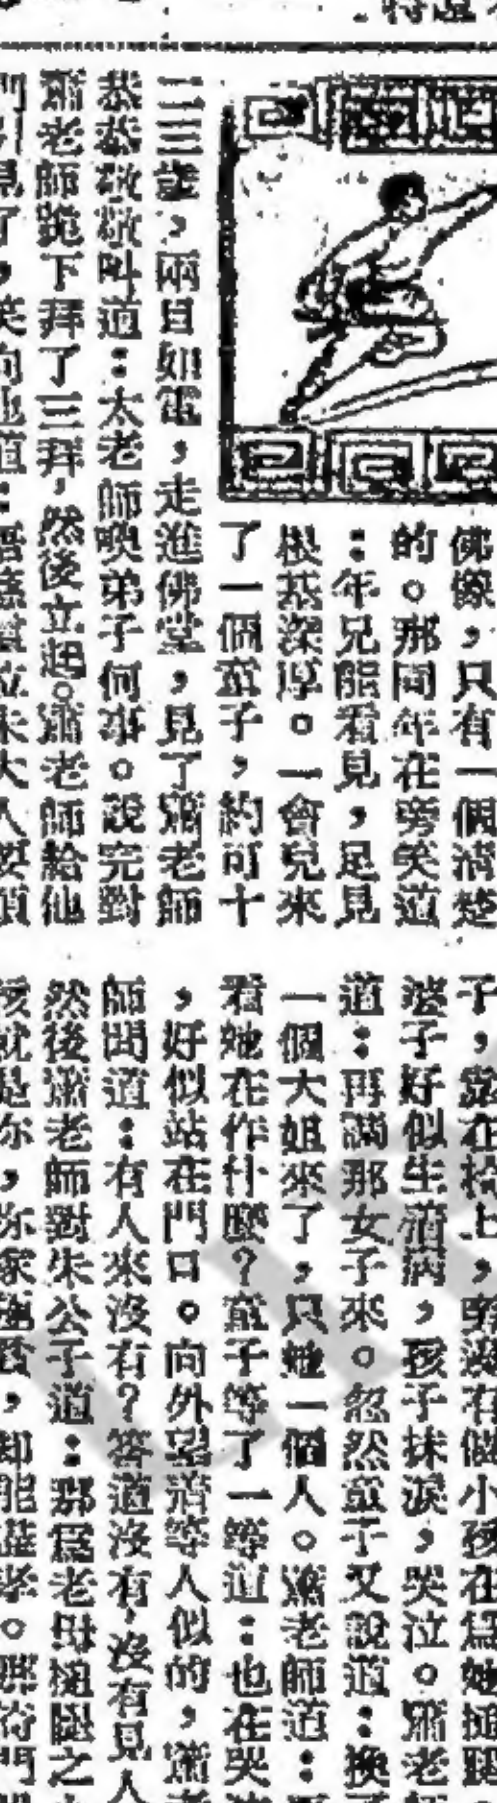 佛像,只有一個清楚
的。那同年在旁笑道
:年兄能看見,足見
根基深厚。一會兒來
了一個童子,約可十
二三歲,兩目如電,走進佛堂,見了蕭老師
恭恭敬敬叫道:太老師喚弟子何事。說完對
蕭老師跪下拜了三拜,然後立起。蕭老師給他
見了,笑向他道:
子,靠在椅上,旁邊有個小孩在為她搥腿。
婆子好似生着病,孩子抹淚,哭泣。蕭老師
道:再調那女子來。忽然童子又說道:換了
一個大姐來了,只她一個人。蕭老師道:
看她在作什麼?童子等了一等道:也在哭泣
,好似站在門口。向外望着等人似的,蕭老
師問道:有人來沒有?答道沒有,沒有見人
然後蕭老師對朱公子道:那為老母搥腿之
就是你,你家